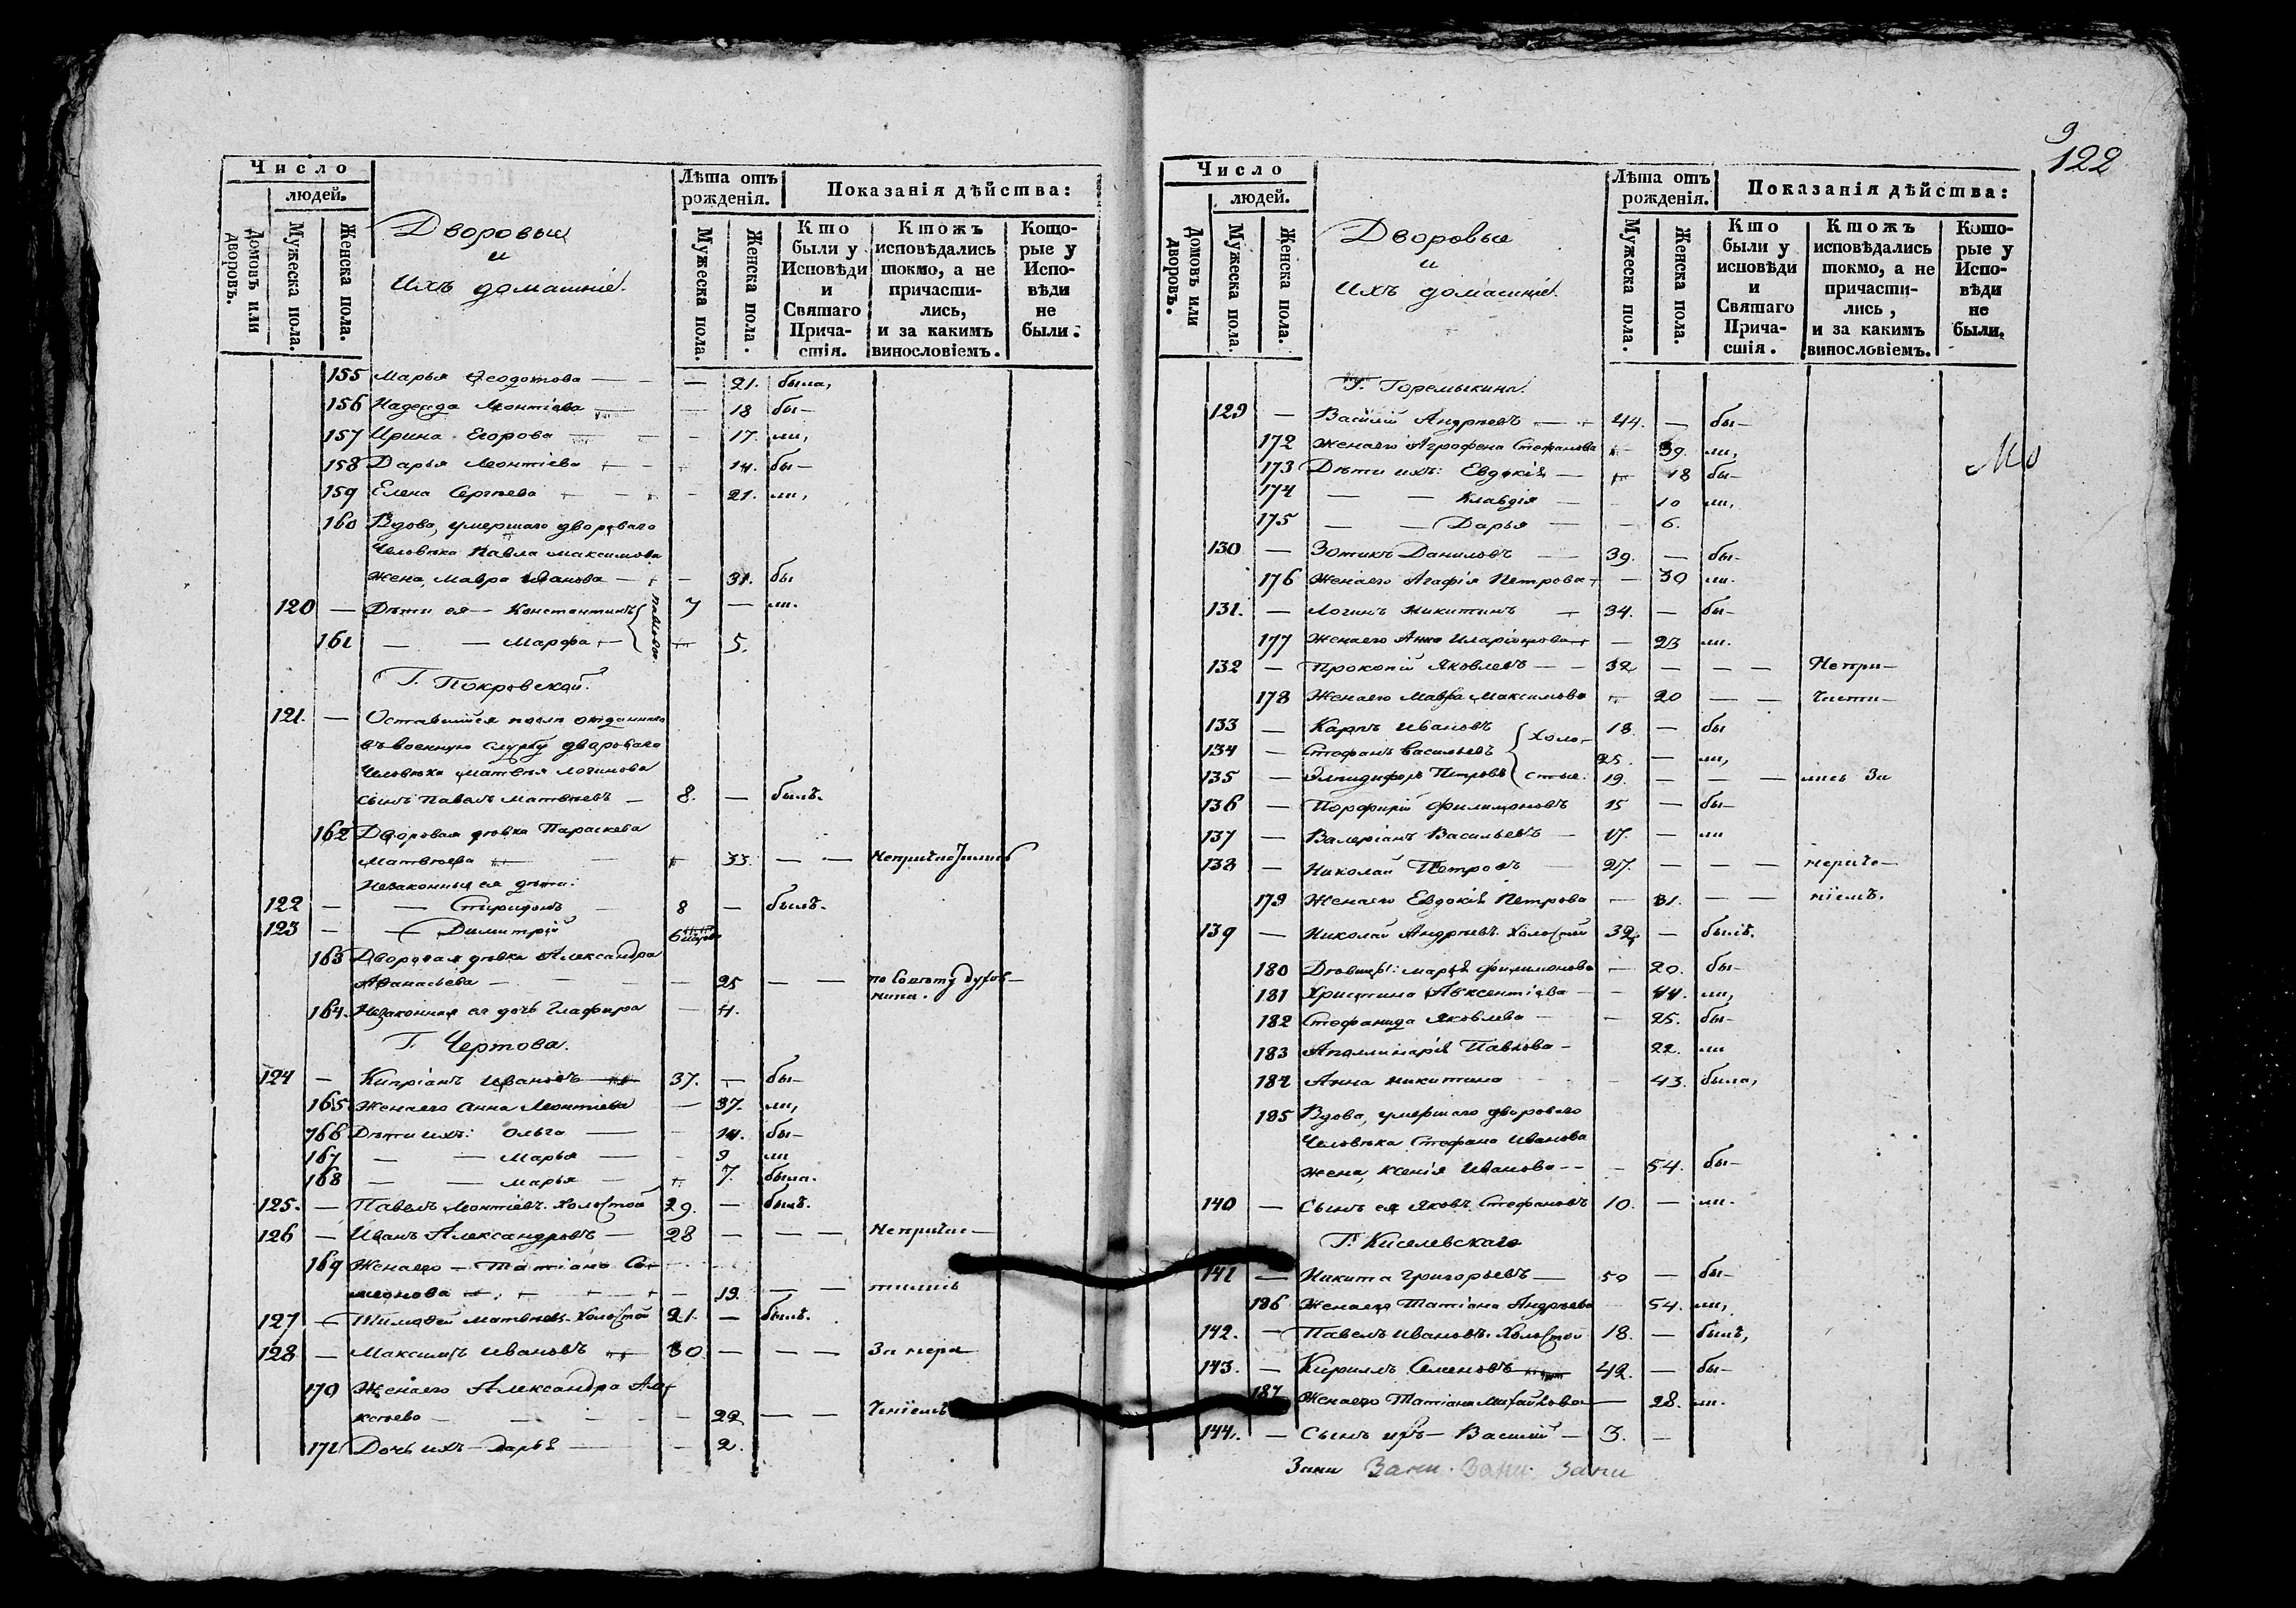 Число
людей.
Домовъ или дворовъ.
Мужеска пола.
Женска пола.
Дворовыя
и
Ихъ домашнiе.
Лѣта отъ рожденія.
Мужеска пола.
Женска пола.
Показанія дѣйства:
Кто были у Исповѣди и Святаго Прича-стія.
Ктожъ исповѣдались токмо, а не причасти-лись, и за какимъ винословіемъ.
Кото-рые у Испо-вѣди не были.
155 Марья Ѳеодотова — — 21. была,
156 Надежда Леонтіева — — 18 бы—
157 Ирина Егорова — — 17. ли,
158 Дарья Леонтіева — — 14. бы—
159 Елена Сергѣева — — 21. ли,
160 Вдова, умершаго двороваго
Человѣка Павла Максимова
жена, Мавра Иванова — — 31. бы
120 — Дѣти ея — Константинъ Павловы 7 — ли.
161 — — Марфа — 5.
Г. Покровской.
121. — Оставшійся послѣ отданнаго
въ военную службу двороваго
Человѣка Матвѣя Логинова
сынъ Павелъ Матвѣевъ — 8. — былъ.
162 Дворовая дѣвка Параскева
Матвѣева — 33. — — Непричастились
Незаконныя ея дѣти:
122 — — Спиридонъ 8 — былъ.
123 — — Димитрій 6
163 Дворовая дѣвка Александра
Аѳанасьева — — 25 — — по совѣту духов—
ника.
164. Незаконная ея дочь Глафира — 4.
Г. Чертова.
124 — Кипріанъ Ивановъ — 37. — бы—
165 Жена его Анна Леонтіева — 37. ли,
166 Дѣти ихъ: Ольга — — 14. бы—
167 — — Марья — — 9 ли
168 — — Марья — 7. была.
125. — Павелъ Леонтіевъ. Холостой 29. — былъ.
126 — Иванъ Александровъ — 28 — — — Непричас—
169 Жена его — Татіана Си—
меонова — 19. — — тились
127 — Тимоѳей Матвѣевъ. Холостой 21. — былъ.
128 — Максимъ Ивановъ 30. — — — За нера—
170 Жена его Александра Але—
ксѣева — — 22 — — ченіемъ
171 Дочь ихъ — Дарья — — 2.
9
122
Число
людей.
Домовъ или дворовъ.
Мужеска пола.
Женска пола.
Дворовыя
и
Ихъ домашніе.
Лѣта отъ рожденія.
Мужеска пола.
Женска пола.
Показанія дѣйства:
Кто были у исповѣди и Святаго Прича-стія.
Ктожъ исповѣдались токмо, а не причасти-лись, и за какимъ винословіемъ.
Кото-рые у Испо-вѣди не были.
Г. Горемыкина.
129 — Василій Андреевъ — 44. — бы—
172 Жена его Агрофена Стефанова 39. ли,
173 Дѣти ихъ: Евдокія — 18 бы—
174 — — Клавдія — 10 ли,
175 — — Дарья — — 6.
130 — Зотикъ Даниловъ — 39. — бы—
176 Жена его Агафія Петрова — 30 ли.
131. — Логинъ Никитинъ 34. — бы—
177 Жена его Анна Иларіонова — 23 ли.
132 — Прокопій Яковлевъ — — 32 — — — Непри—
178 Жена его Мавра Максимова 20 — — части—
133 — Карпъ Ивановъ Холо— 18. — бы
134 — Стефанъ Васильевъ 25. — ли,
135 — Элпидифоръ Петровъ стые. 19. — — — лись за
136 — Порфирій Филимоновъ 15 — бы—
137 — Валеріанъ Васильевъ — 17. — ли
138 — Николай Петровъ 27. — — — нераче—
179 Жена его Евдокія Петрова — 31. — — ніемъ.
139 — Николай Андреевъ. Холостой 32 — былъ.
180 Дѣвицы: Марья Филимонова — 20. бы—
181 Христина Авксентіева — — 44. ли,
182 Стефанида Яковлева — — 25. бы—
183 Аполлинарія Павлова — 22. ли
184 Анна Никитина — 43. была,
185 Вдова, умершаго двороваго
Человѣка Стефана Иванова
жена, Ксенія Иванова — — 54. бы—
140 — Сынъ ея Яковъ Стефановъ 10. — ли.
Г. Киселевскаго
141 — Никита Григорьевъ — 50 — бы—
186 Жена его Татіана Андреева 54. ли,
142. — Павелъ Ивановъ. Холостой 18. — былъ,
143. — Кириллъ Семеновъ 42. — бы—
187 Жена его Татіана Михайлова — 28. ли.
144. — Сынъ ихъ — Василій — 3. —